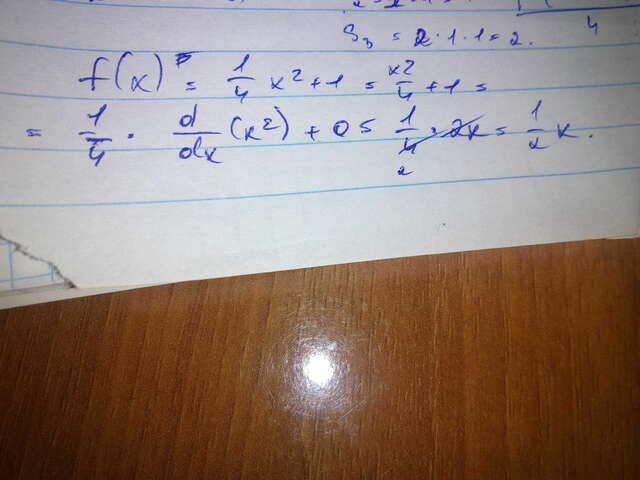 S₃ = 2·1·1=2.
4
f(x) = 1/4 x² + 1 = x²/4 + 1 =
= 1/4 · d/dx (x²) + 0 = 1/4 · 2x = 1/2 x.
2